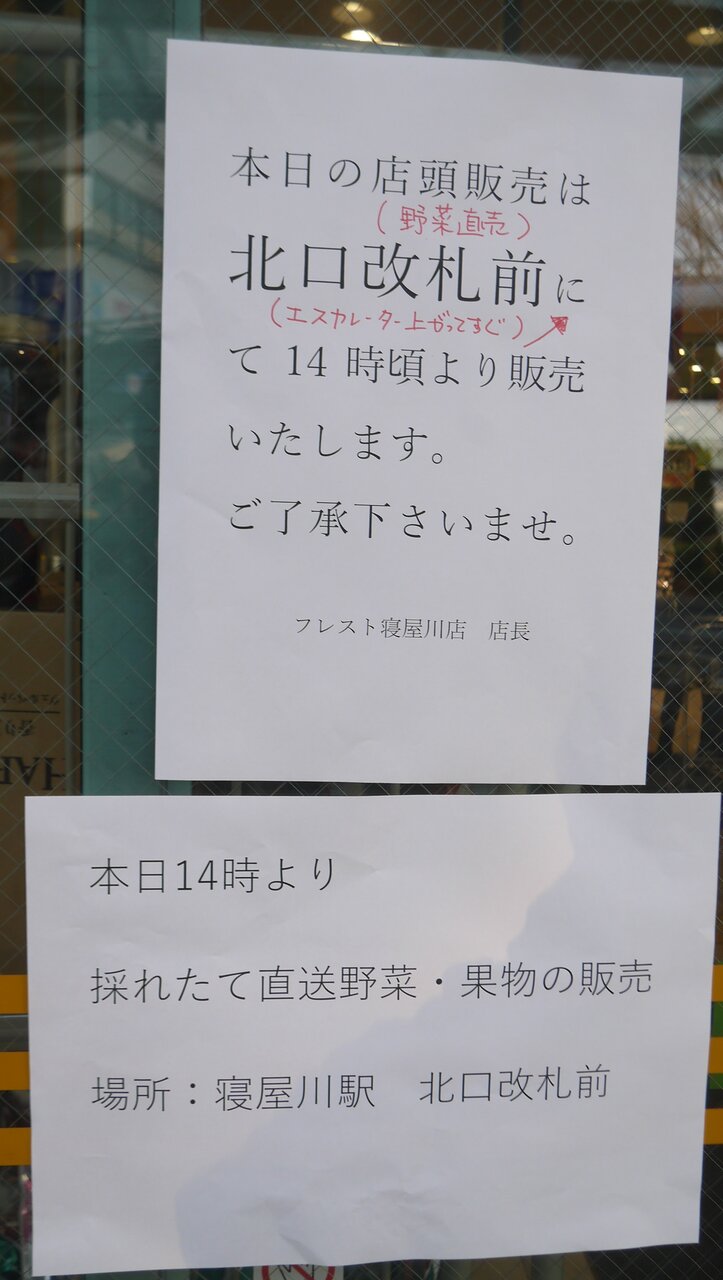 本日の店頭販売は
（野菜直売）
北口改札前に
（エスカレーター上がってすぐ）
て 14 時頃より販売
いたします。
ご了承下さいませ。
フレスト寝屋川店　店長
本日14時より
採れたて直送野菜・果物の販売
場所：寝屋川駅　北口改札前